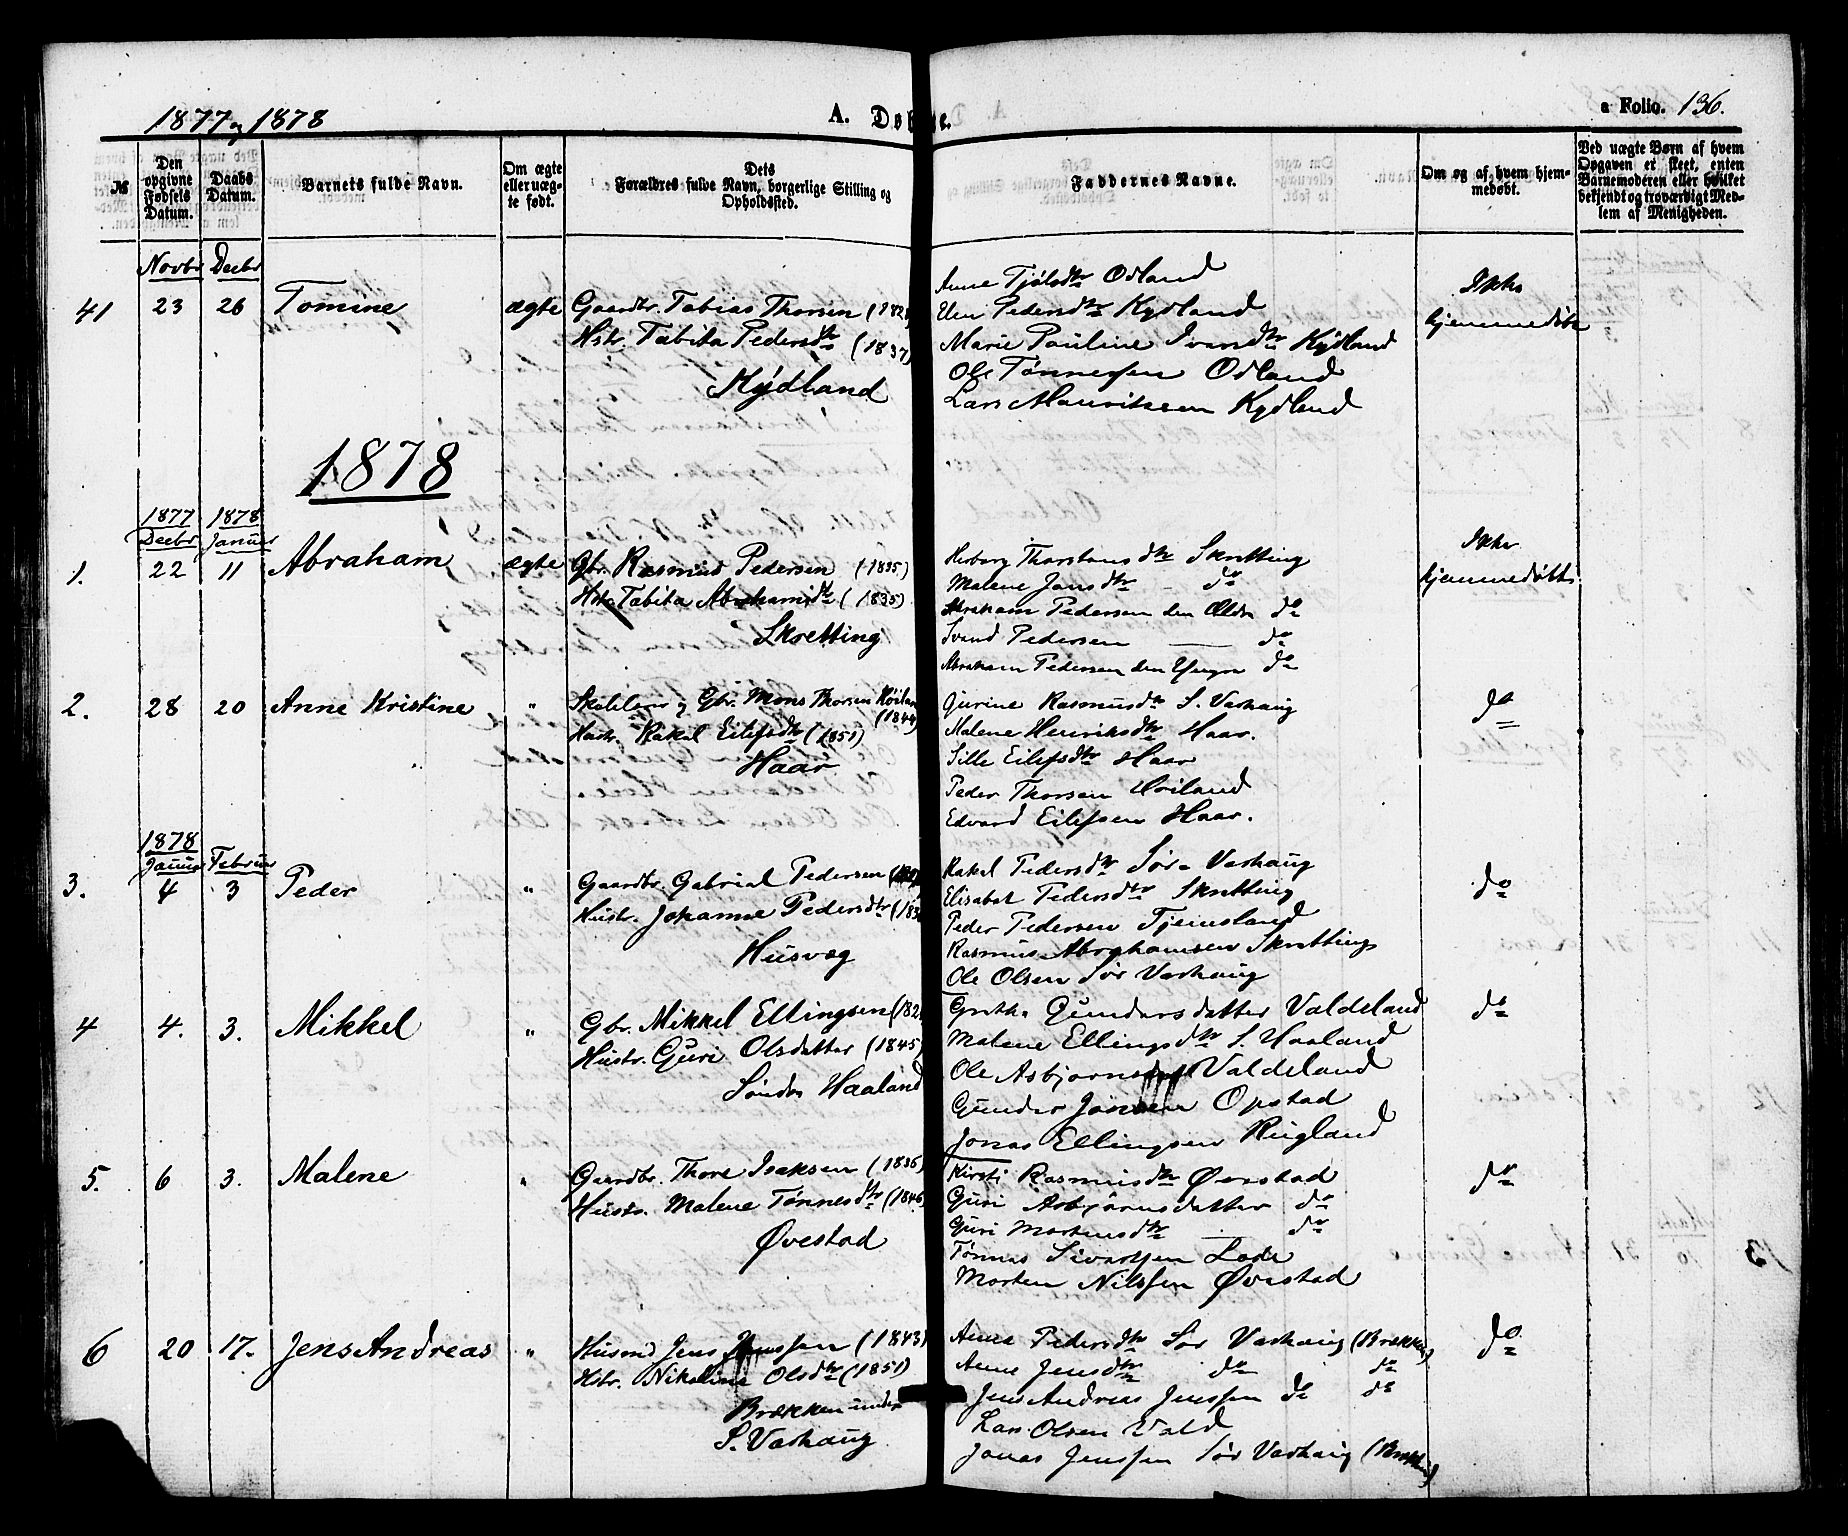 1877 og 1878
A. Døbte.
a Folio. 136.
№
Den opgivne Fødsels Datum.
Daabs Datum.
Barnets fulde Navn.
Om ægte eller uægte født.
Dets Forældres fulde Navn, borgerlige Stilling og Opholdssted.
Faddernes Navne.
Om og af hvem hjemmedøbt.
Ved uægte Børn af hvem Opgaven er skeet, enten Barnemoderen eller hvilket bekjendt og troværdigt Medlem af Menigheden.
Novbr Decbr
41 23 26 Tomine ægte Gaardbr. Tobias Thorsen (182
Hstr. Tabita Pedersdtr (1837)
Kydland
Anne Tjølsdtr Odland
Elen Pedersdtr Kydland
Marie Pauline Ivarsdtr Kydland
Ole Tønnesen Odland
Lars Mauritsen Kydland
Ikke
hjemmedøbt
1878
1877 1878
Decbr Januar
1. 22 11 Abraham ægte Gbr. Rasmus Pedersen (1835)
Hstr. Tabita Abrahamsdtr (1835)
Skretting
Herborg Thorstensdtr Skretting
Malene Jansdtr - do
Abraham Pedersen den Ældre do
Svend Pedersen — do
Abraham Pedersen den Yngre do
Ikke
hjemmedøbt
2. 28 20 Anne Kristine " Skolelærer og Gbr. Mons Thorsen Høiland
(1844)
Hustr. Rakel Eilefsdtr (1851)
Haar
Gurine Rasmusdtr S. Varhaug
Malene Henriksdtr Haar.
Sille Eilefsdtr Haar
Peder Thorsen Høiland
Edvard Eilefsen Haar.
do
1878
Januar Februar
3. 4 3 Peder " Gaardbr. Gabriel Pedersen
Hustr. Johanne Pedersdtr (183
Husvæg
Rakel Pedersdtr Sør-Varhaug
Elisabet Pedersdtr Skretting
Peder Pedersen Tjemsland
Rasmus Abrahamsen Skretting
Ole Olsen Sør Varhaug
do
4 4. 3. Mikkel " Gbr. Mikkel Ellingsen (182
Hustr. Guri Olsdatter (1845)
Søndre Haaland
Grethe Gundersdatter Valdeland
Malene Ellingsdtr S. Haaland
Ole Asbjørnsen Valdeland
Gunder Jonsen Opstad
Jonas Ellingsen Rugland
do
5. 6 3. Malene " Gaardbr. Thore Isaksen (1836)
Hustr. Malene Tønnesdtr (1846)
Øvestad
Kirsti Rasmusdtr Øvestad
Guri Asbjørnsdatter do
Guri Mortensdtr — do
Tønnes Sivertsen Lode
Morten Nilssen Øvestad
do
6 20 17. Jens Andreas " Husmd Jens Jenssen (1843)
Hstr. Nikoline Olsdtr (1851)
Brækken under
S. Varhaug
Anne Pedersdtr Sør Varhaug (Brækken)
Anne Jensdtr do do
Jens Andreas Jenssen do do
Lars Olsen Vold
Jonas Jenssen Sør Varhaug (Brækken)
do